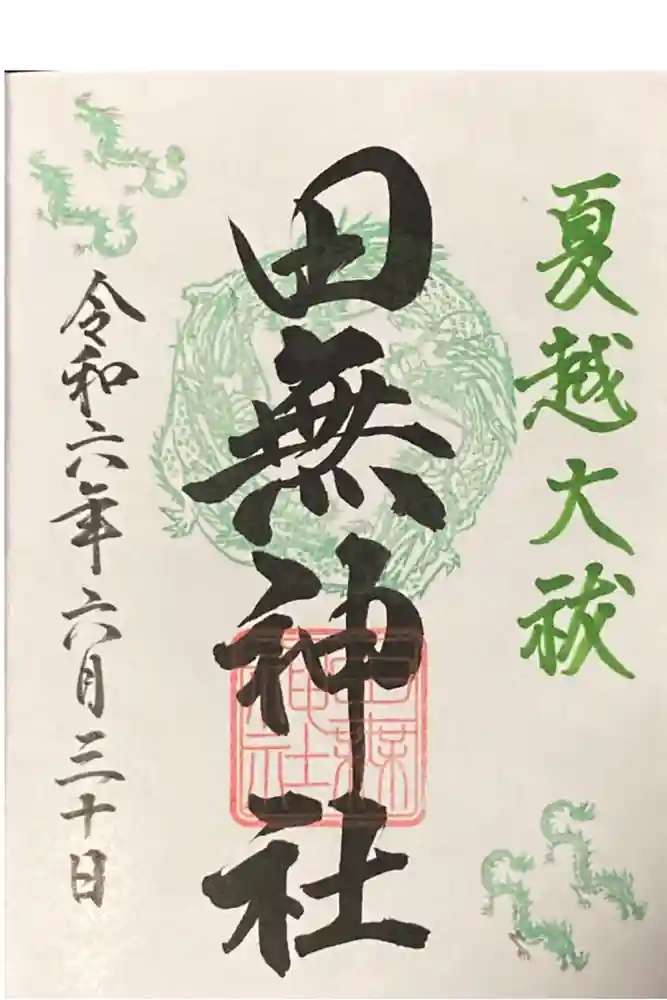 夏越大祓
田無神社
田無神社
令和六年六月三十日